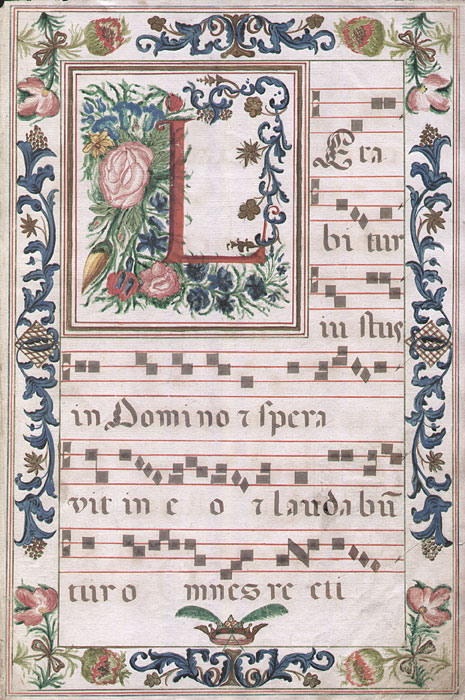 L Eta
bi tur
iu stus
in Domino ⁊ spera
vit in e o ⁊ laudabũ
tur o mnes re cti